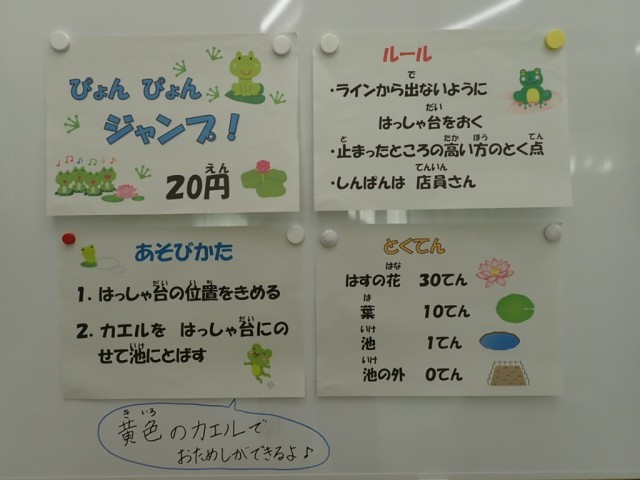 ぴょん ぴょん
ジャンプ！
20円
えん
ルール
・ラインから出ないように
で
はっしゃ台をおく
だい
・止まったところの高い方のとく点
と たか ほう てん
・しんぱんは 店員さん
てんいん
あそびかた
1. はっしゃ台の位置をきめる
だい いち
2. カエルを はっしゃ台にの
だい
せて池にとばす
いけ
とくてん
はすの花 30てん
はな
葉 10てん
は
池 1てん
いけ
池の外 0てん
いけ
黄色のカエルで
きいろ
おためしができるよ♪